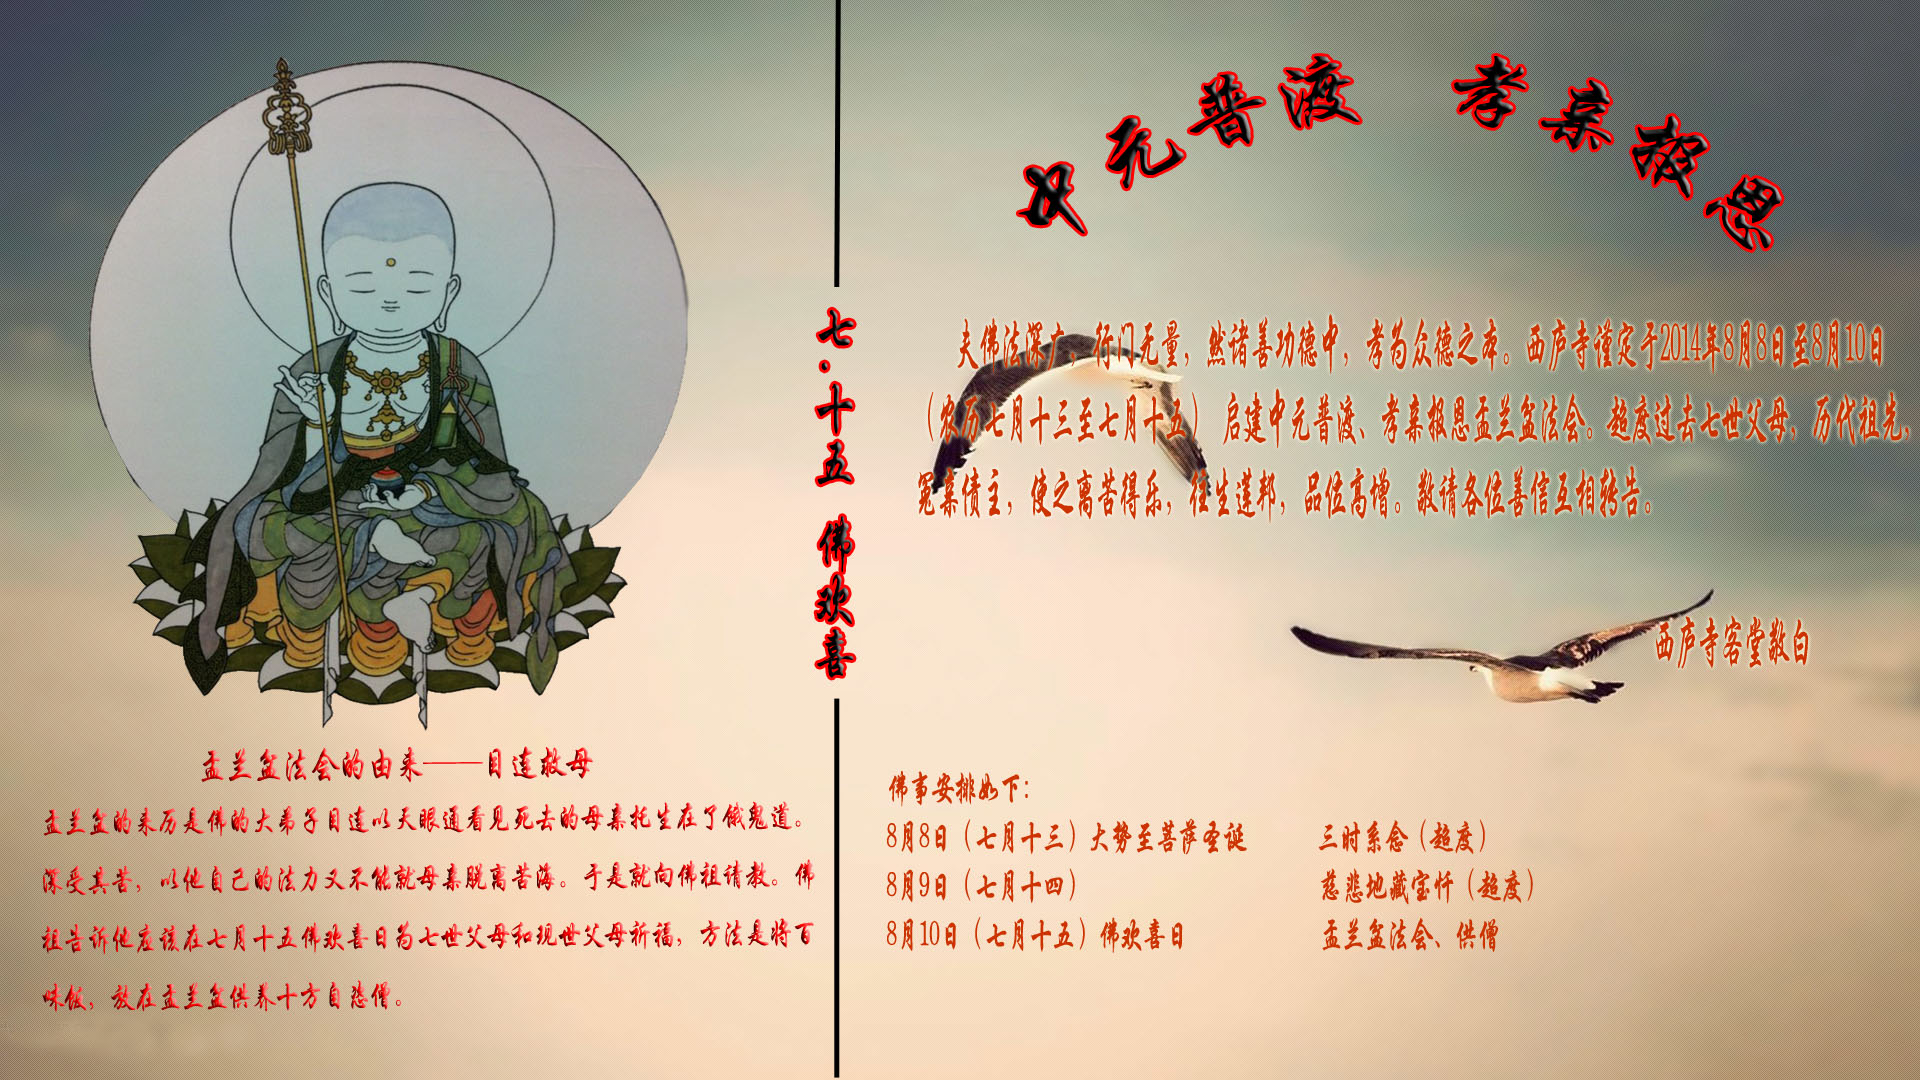 元普渡 孝亲报恩
七·十五 佛欢喜
盂兰盆法会的由来——目连救母
盂兰盆的来历是佛的大弟子目连以天眼通看见死去的母亲托生在了饿鬼道。
深受其苦，以他自己的法力又不能就母亲脱离苦海。于是就向佛祖请教。佛
祖告诉他应该在七月十五佛欢喜日为七世父母和现世父母祈福，方法是将百
味饭，放在盂兰盆供养十方自恣僧。
夫佛法深广，行门无量，然诸善功德中，孝为众德之本。西庐寺谨定于2014年8月8日至8月10日
（农历七月十三至七月十五） 启建中元普渡、孝亲报恩盂兰盆法会。超度过去七世父母，历代祖先，
冤亲债主，使之离苦得乐，往生莲邦，品位高增。敬请各位善信互相转告。
西庐寺客堂敬白
佛事安排如下：
8月8日（七月十三）大势至菩萨圣诞 三时系念（超度）
8月9日（七月十四） 慈悲地藏宝忏（超度）
8月10日（七月十五）佛欢喜日 盂兰盆法会、供僧